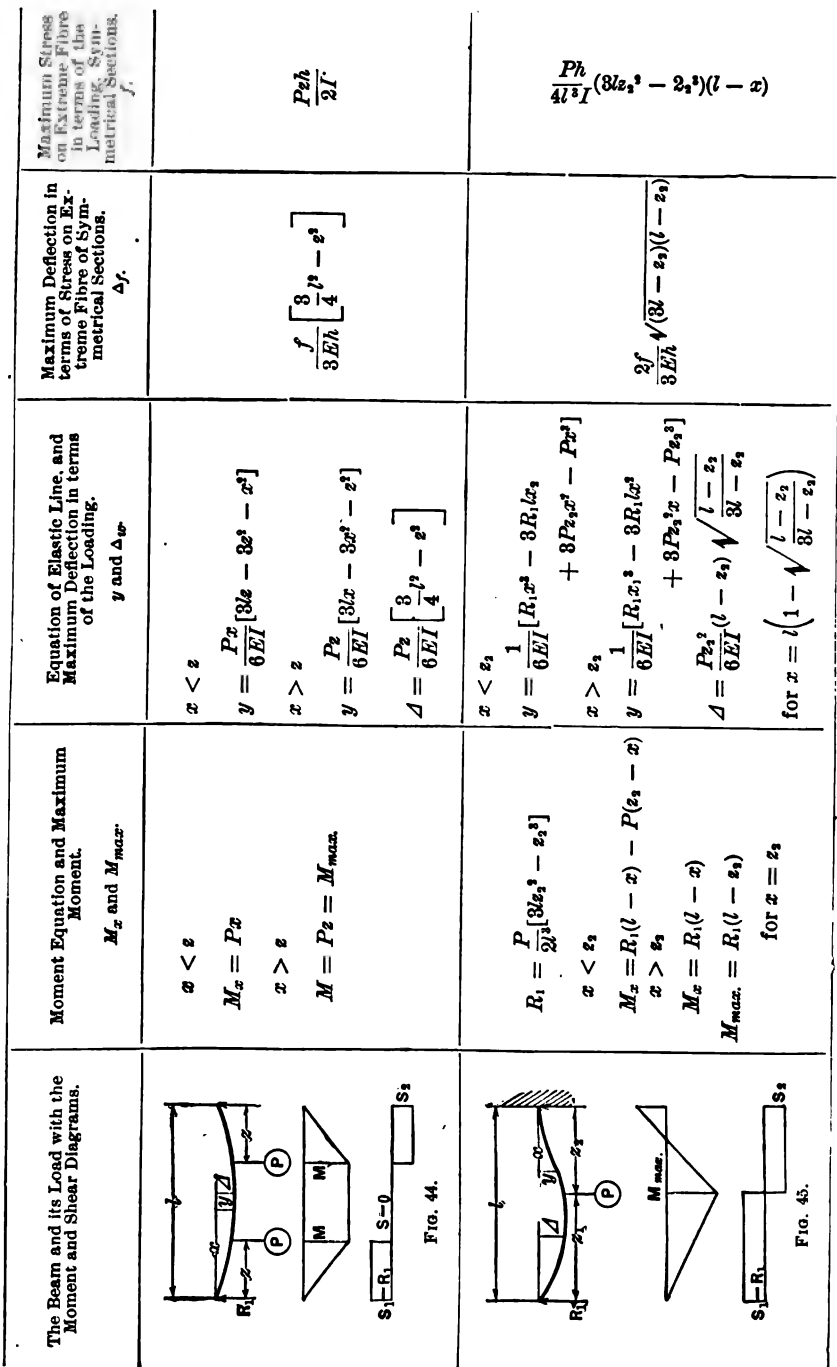 The Beam and its Load with the
Moment and Shear Diagrams.
Moment Equation and Maximum
Moment.
Mₓ and M_max.
Equation of Elastic Line, and
Maximum Deflection in terms
of the Loading.
y and Δ_w.
Maximum Deflection in
terms of Stress on Ex-
treme Fibre of Sym-
metrical Sections.
Δ_f.
Maximum Stress
on Extreme Fibre
in terms of the
Loading. Sym-
metrical Sections.
f.
l
x
y Δ
R₁
z
z
P
P
M
M
S₁=R₁
S=0
S₂
FIG. 44.
x < z
Mₓ = Px
x > z
M = Pz = M_max.
x < z
y = Px/6EI [3lz − 3z² − x²]
x > z
y = Pz/6EI [3lx − 3x² − z²]
Δ = Pz/6EI [3/4 l² − z²]
f/3Eh [3/4 l² − z²]
Pzh/2I
l
Δ
y
x
R₁
z₁
z₂
P
M max.
S₁=R₁
S₂
FIG. 45.
R₁ = P/2l³ [3lz₂² − z₂³]
x < z₂
Mₓ = R₁(l − x) − P(z₂ − x)
x > z₂
Mₓ = R₁(l − x)
M_max. = R₁(l − z₂)
for x = z₂
x < z₂
y = 1/6EI [R₁x³ − 3R₁lx₂
+ 3Pz₂x² − Px³]
x > z₂
y = 1/6EI [R₁x₁³ − 3R₁lx²
+ 3Pz₂²x − Pz₂³]
Δ = Pz₂²/6EI (l − z₂) √((l − z₂)/(3l − z₂))
for x = l(1 − √((l − z₂)/(3l − z₂)))
2f/3Eh √((3l − z₂)(l − z₂))
Ph/4l³I (3lz₂² − 2₂³)(l − x)